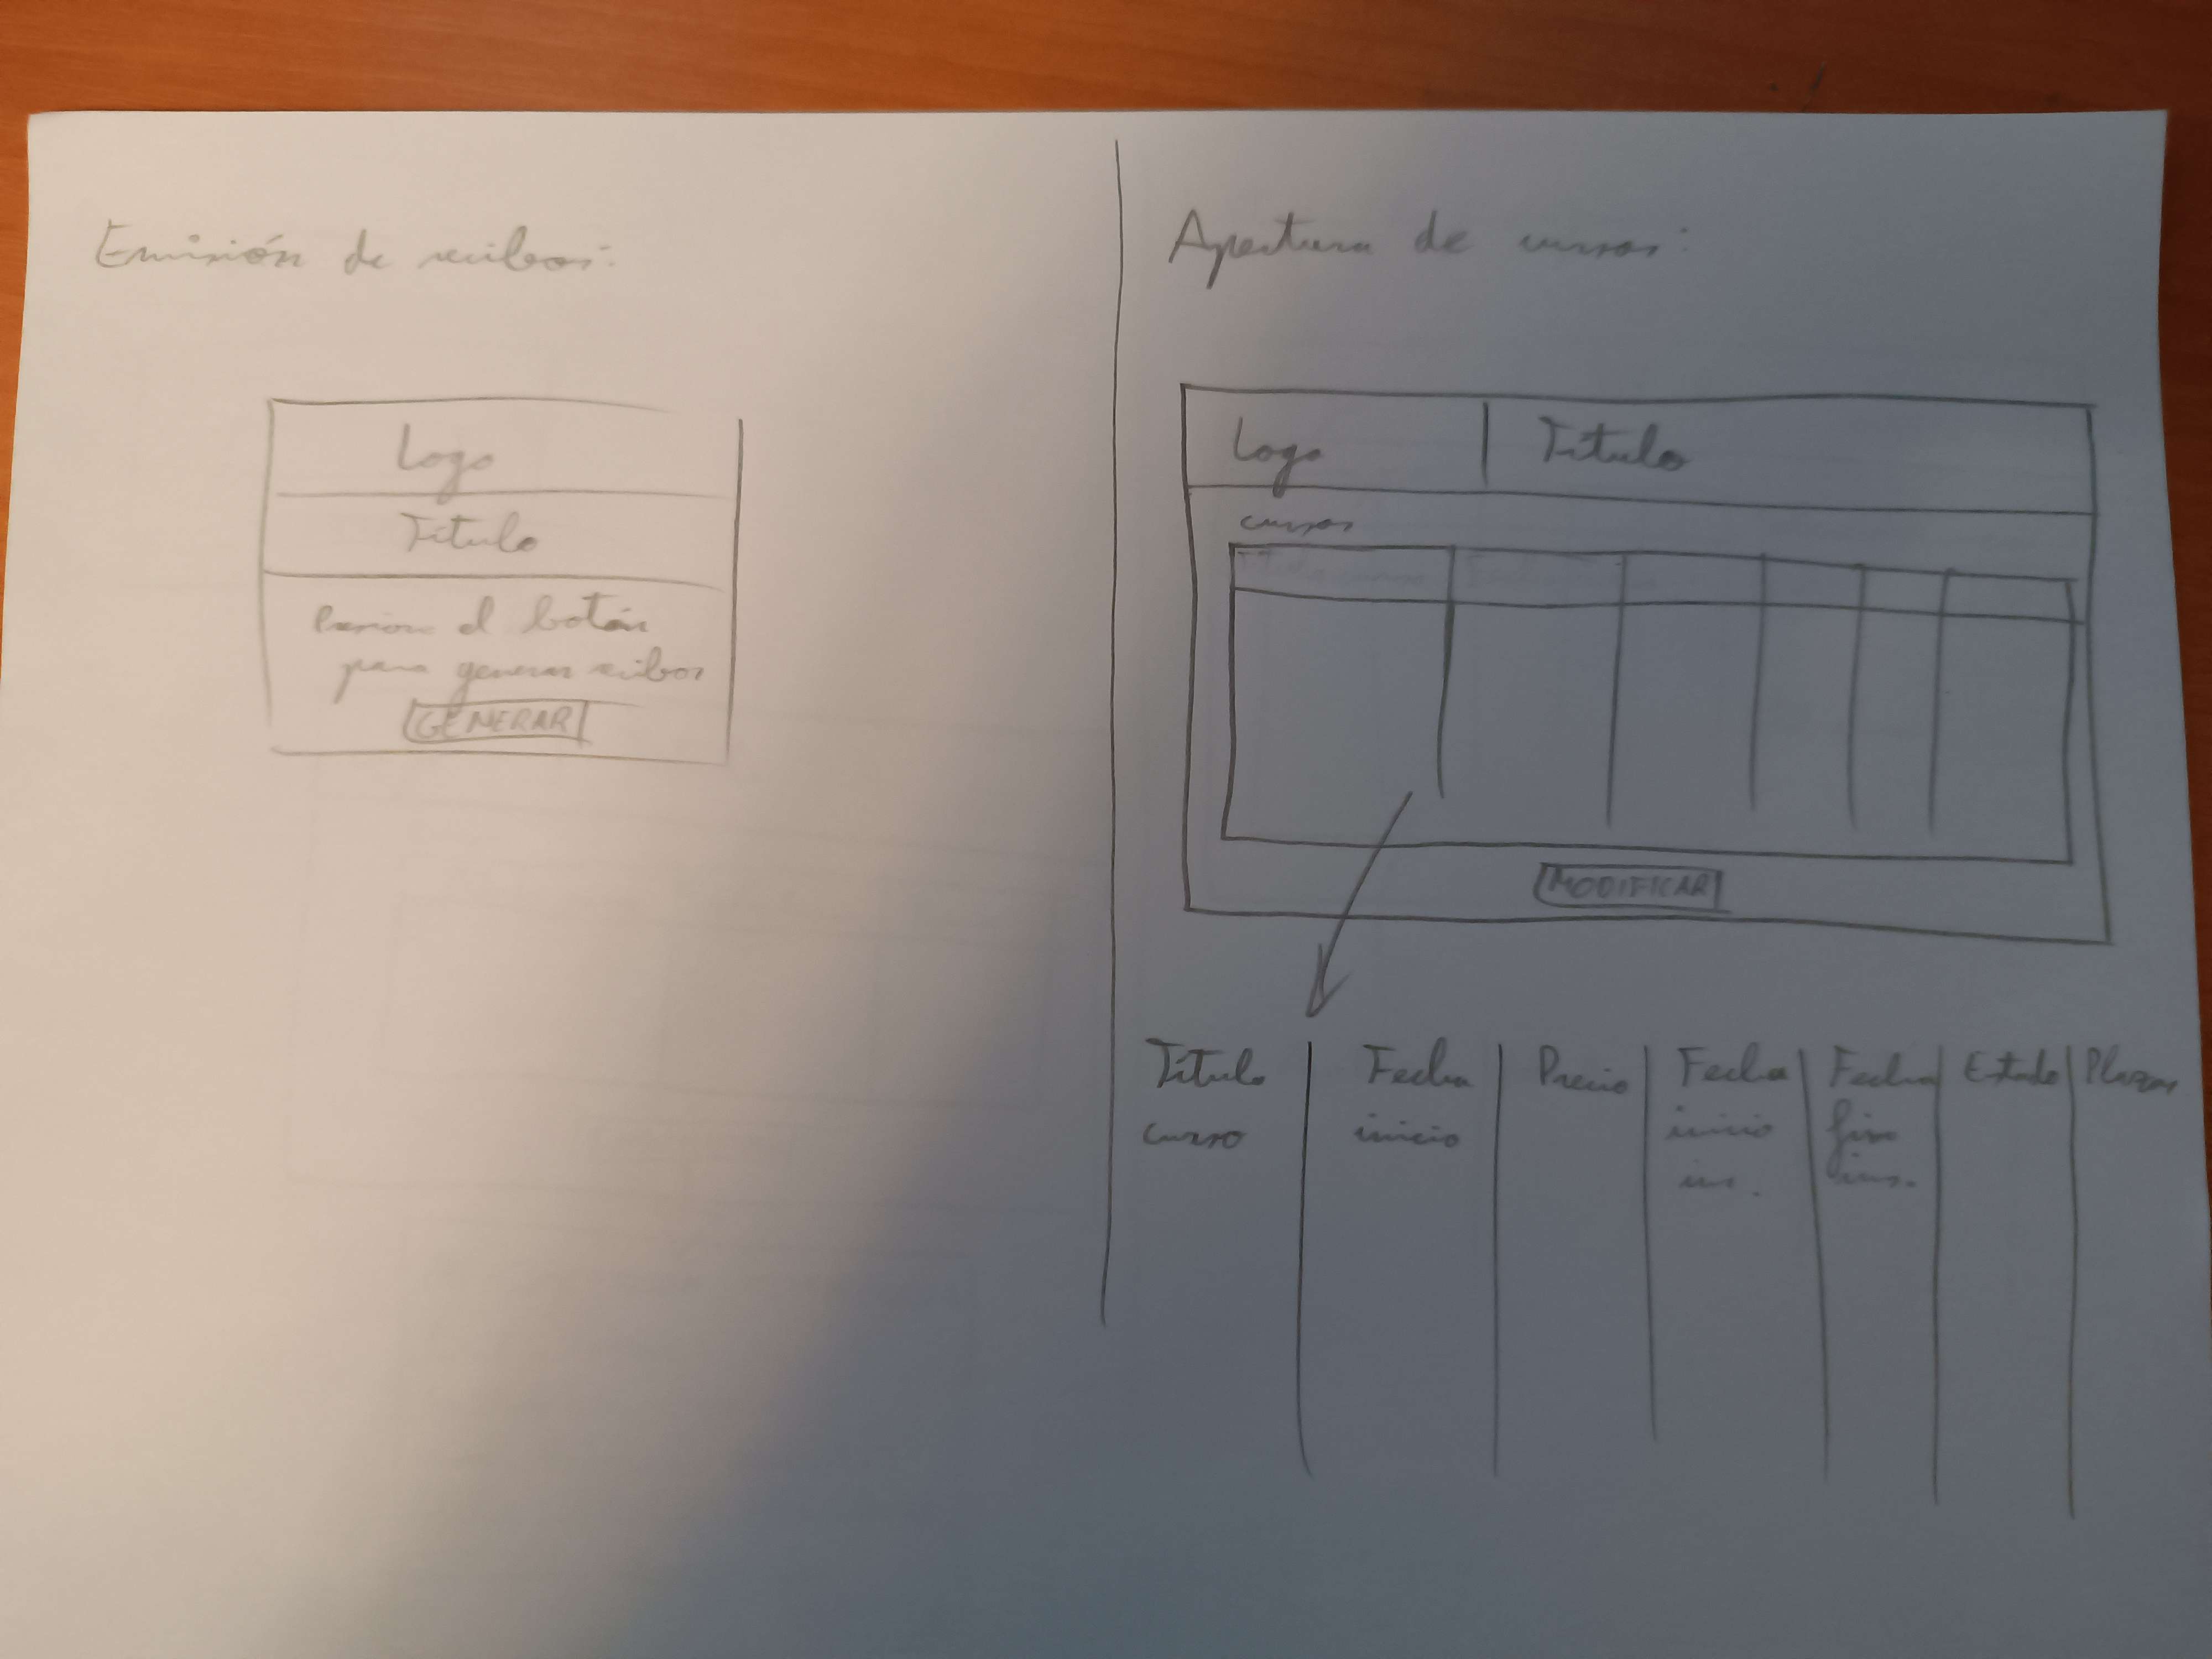 Emisión de recibos:
Logo
Título
Presione el botón
para generar recibos
GENERAR
Apertura de cursos:
Logo
Título
cursos
MODIFICAR
Título curso
Fecha inicio
Precio
Fecha inicio ins.
Fecha fin ins.
Estado
Plazas